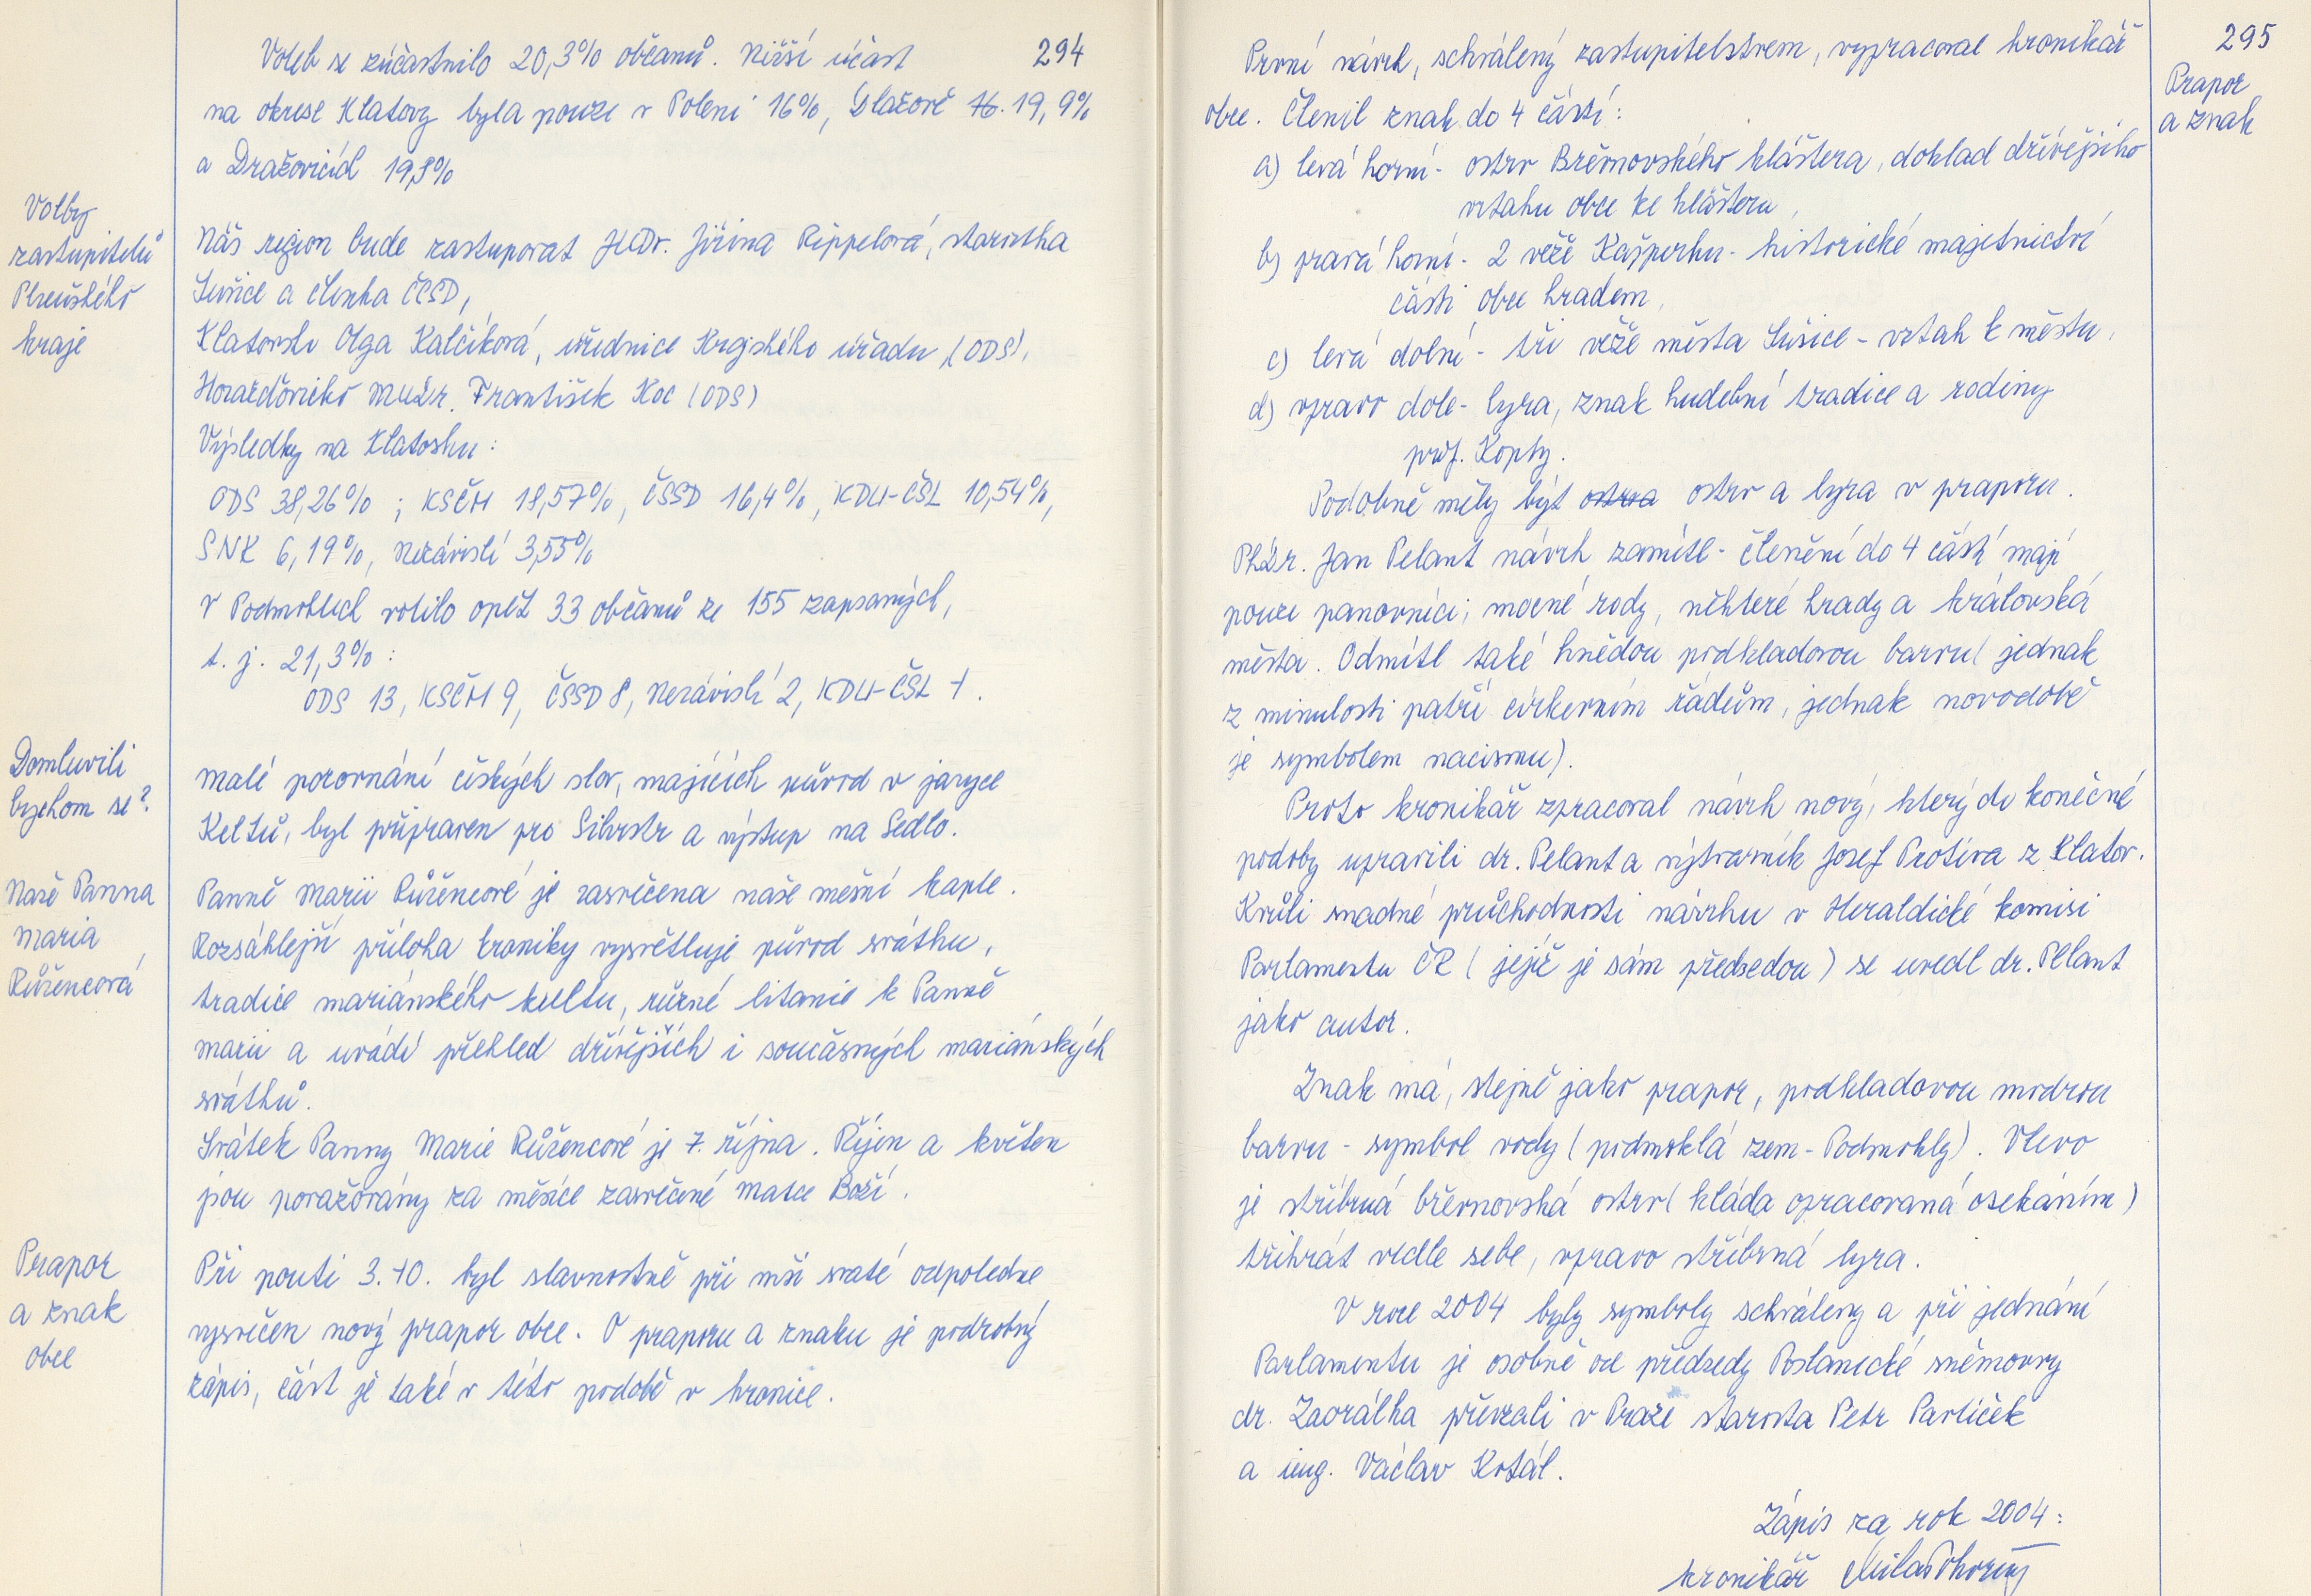 294
Voleb se zúčastnilo 20,3% občanů. Nižší účast
na okrese Klatovy byla pouze v Poleni 16%, Dlažově 16. 19,9%
a Dražovicích 19,8%
Volby
zastupitelů
Plzeňského
kraje
Náš region bude zastupovat JUDr. Jiřina Rippelová, starostka
Sušice a členka ČSSD,
Klatovsko Olga Kalčíková, úřednice Krajského úřadu (ODS),
Horažďovicko MUDr. František Koc (ODS)
Výsledky na Klatosku:
ODS 38,26% ; KSČM 18,57%, ČSSD 16,4%, KDU-ČSL 10,54%,
SNK 6,19%, Nezávislí 3,55%
V Podmoklech volilo opět 33 občanů ze 155 zapsaných,
t. j. 21,3% :
ODS 13, KSČM 9, ČSSD 8, Nezávislí 2, KDU-ČSL 1.
Domluvili
bychom se?
Malé porovnání českých slov, majících původ v jazyce
Keltů, byl připraven pro Silvestr a výstup na Sedlo.
Naše Panna
Maria
Růžencová
Panně Marii Růžencové je zasvěcena naše mešní kaple.
Rozsáhlejší příloha kroniky vysvětluje původ svátku,
tradice mariánského kultu, různé litanie k Panně
Marii a uvádí přehled dřívějších i současných mariánských
svátků.
Svátek Panny Marie Růžencové je 7. října. Říjen a květen
jsou považovány za měsíce zasvěcené Matce Boží.
Prapor
a znak
obce
Při pouti 3.10. byl slavnostně při mši svaté odpoledne
vysvěcen nový prapor obce. O praporu a znaku je podrobný
zápis, část je také v této podobě v kronice.
295
Prapor
a znak
První návrh, schválený zastupitelstvem, vypracoval kronikář
obce. Členil znak do 4 částí:
a) levá horní - ostrv Břevnovského kláštera, doklad dřívějšího
vztahu obce ke klášteru,
b) pravá horní - 2 věže Kašperku - historické majetnictví
části obce hradem,
c) levá dolní - tři věže města Sušice - vztah k městu,
d) vpravo dole - lyra, znak hudební tradice a rodiny
prof. Kopty.
Podobně měly být ostrva ostrv a lyra v praporu.
PhDr. Jan Pelant návrh zamítl - členění do 4 částí mají
pouze panovníci, mocné rody, některé hrady a královská
města. Odmítl také hnědou podkladovou barvu (jednak
z minulosti patří církevním řádům, jednak novodobě
je symbolem nacismu).
Proto kronikář zpracoval návrh nový, který do konečné
podoby upravili dr. Pelant a výtvarník Josef Protiva z Klatov.
Kvůli snadné průchodnosti návrhu v Heraldické komisi
Parlamentu ČR (jejíž je sám předsedou) se uvedl dr. Pelant
jako autor.
Znak má, stejně jako prapor, podkladovou modrou
barvu - symbol vody (podmoklá zem - Podmokly). Vlevo
je stříbrná břevnovská ostrv (kláda opracovaná osekáním)
třikrát vedle sebe, vpravo stříbrná lyra.
V roce 2004 byly symboly schváleny a při jednání
Parlamentu je osobně od předsedy Poslanecké sněmovny
dr. Zaorálka převzali v Praze starosta Petr Pavlíček
a ing. Václav Kotál.
Zápis za rok 2004:
kronikář Mila Pokorný